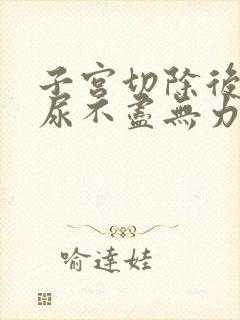 子宮切除後
尿不盡無力
喻達娃